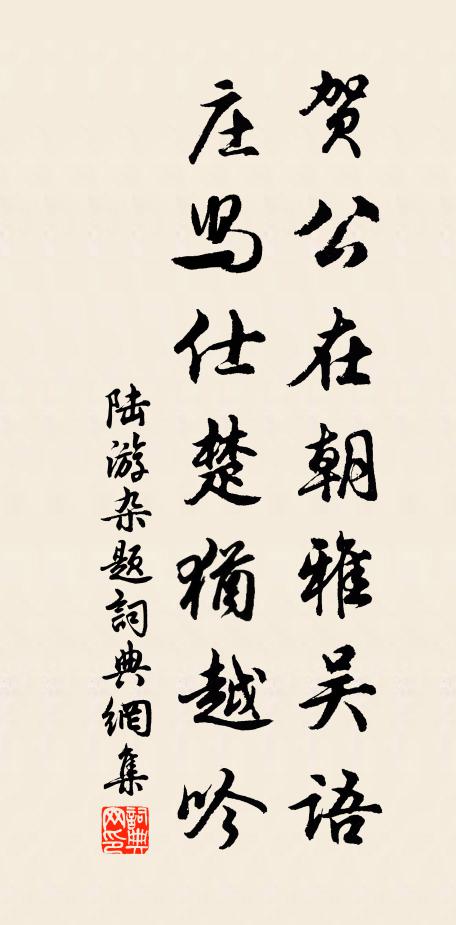 贺公在朝雅吴语
庄舄仕楚犹越吟
陆游杂题詞典網集
詞典网印